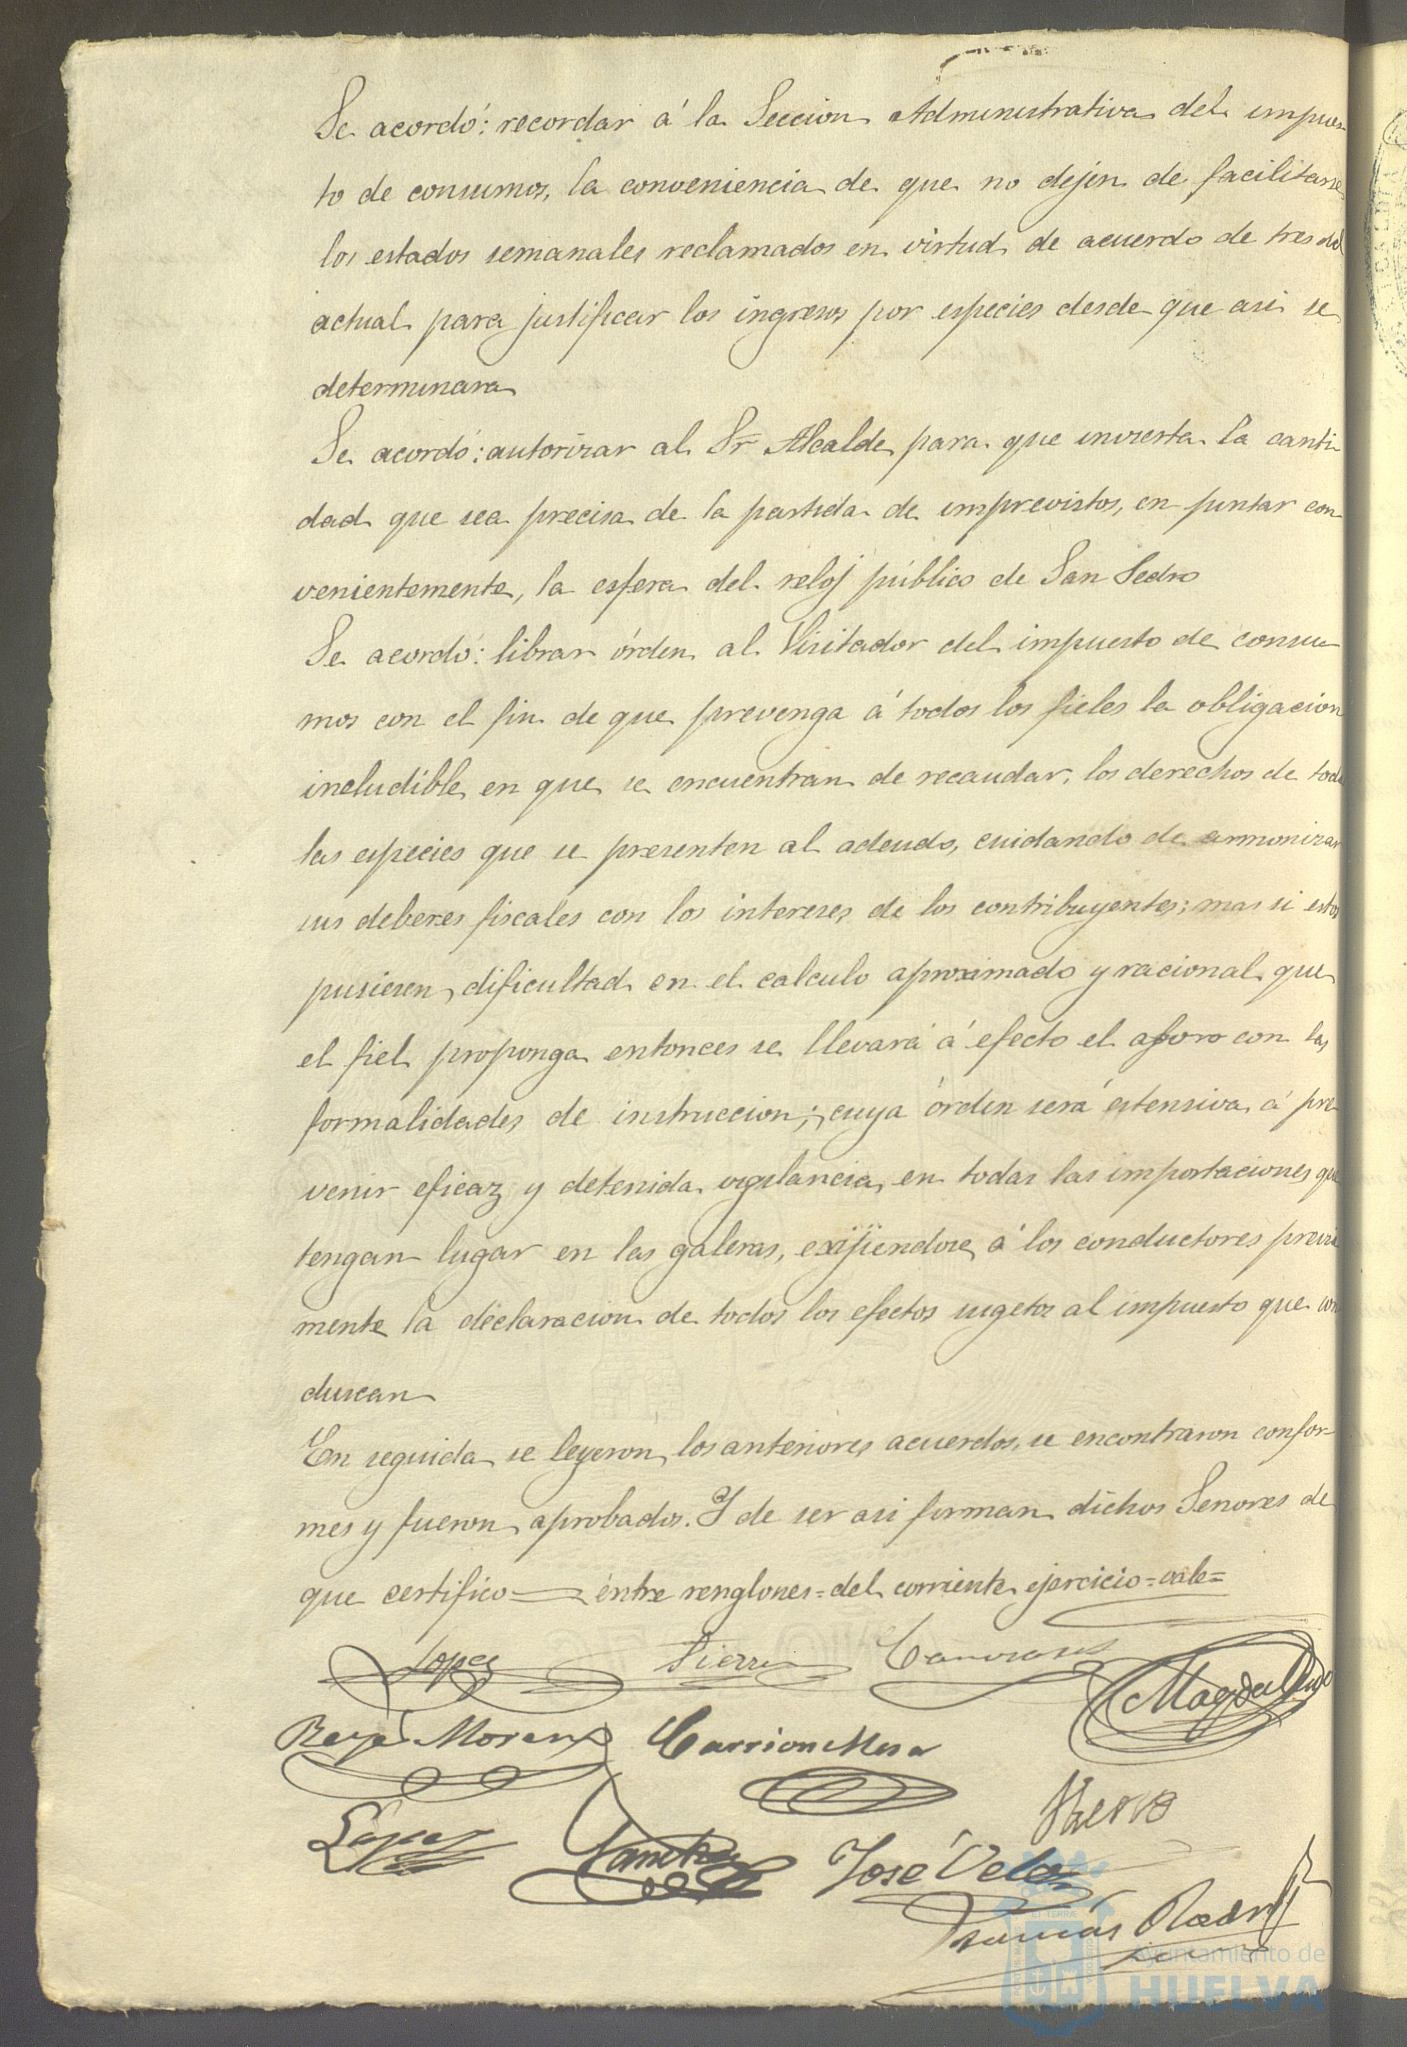 Se acordó: recordar á la Seccion Administrativa del impues-
to de consumos, la conveniencia de que no dejen de facilitarse
los estados semanales reclamados en virtud de acuerdo de tres del
actual para justificar los ingresos por especies desde que asi se
determinara
Se acordó: autorizar al Sr Alcalde para que invierta la canti-
dad que sea precisa de la partida de imprevistos, en pintar con-
venientemente, la esfera del reloj público de San Pedro
Se acordó: librar órden al Visitador del impuesto de consu-
mos con el fin de que prevenga á todos los fieles la obligacion
ineludible en que se encuentran de recaudar, los derechos de todas
las especies que se presenten al adeudo, cuidando de armonizar
sus deberes fiscales con los intereses de los contribuyentes; mas si estos
pusiesen dificultad en el calculo aproximado y racional que
el fiel proponga entonces se llevará á efecto el aforo con las
formalidades de instruccion; cuya órden será estensiva á pre-
venir eficaz y detenida vigilancia en todas las importaciones que
tengan lugar en las galeras, exijiendose á los conductores previa-
mente la declaracion de todos los efectos sugetos al impuesto que con
duscan
En seguida se leyeron los anteriores acuerdos, se encontraron confor-
mes y fueron aprobados. Y de ser asi firman dichos Señores de
que certifico = entre renglones = del corriente ejercicio = vale =
Lopez
Sierra
Magdaleno
Moreno
Carrion Mesa
Lopez
Sanchez
José Velez
Tomás Rodrig
Ayuntamiento de
HUELVA